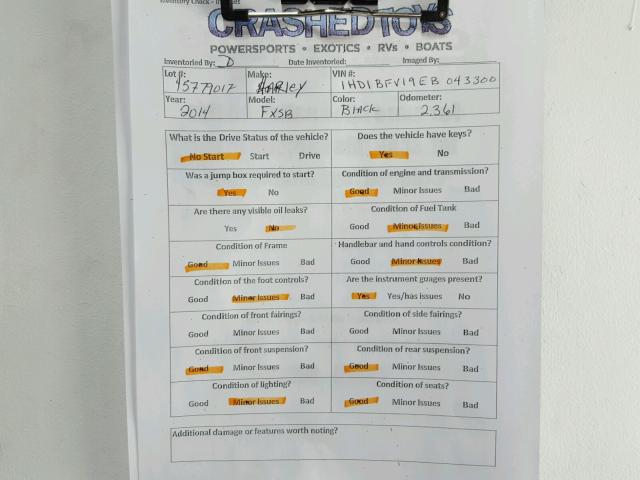 CRASHEDTOYS
POWERSPORTS • EXOTICS • RVs • BOATS
Inventoried By: D Date Inventoried: Imaged By:
Lot #: Make: VIN #:
45779017 HARLEY 1HD1BFV19EB 043300
Year: Model: Color: Odometer:
2014 FXSB Black 2,361
What is the Drive Status of the vehicle? Does the vehicle have keys?
No Start Start Drive Yes No
Was a jump box required to start? Condition of engine and transmission?
Yes No Good Minor Issues Bad
Are there any visible oil leaks? Condition of Fuel Tank
Yes No Good Minor Issues Bad
Condition of Frame Handlebar and hand controls condition?
Good Minor Issues Bad Good Minor Issues Bad
Condition of the foot controls? Are the instrument guages present?
Good Minor Issues Bad Yes Yes/has issues No
Condition of front fairings? Condition of side fairings?
Good Minor Issues Bad Good Minor Issues Bad
Condition of front suspension? Condition of rear suspension?
Good Minor Issues Bad Good Minor Issues Bad
Condition of lighting? Condition of seats?
Good Minor Issues Bad Good Minor Issues Bad
Additional damage or features worth noting?